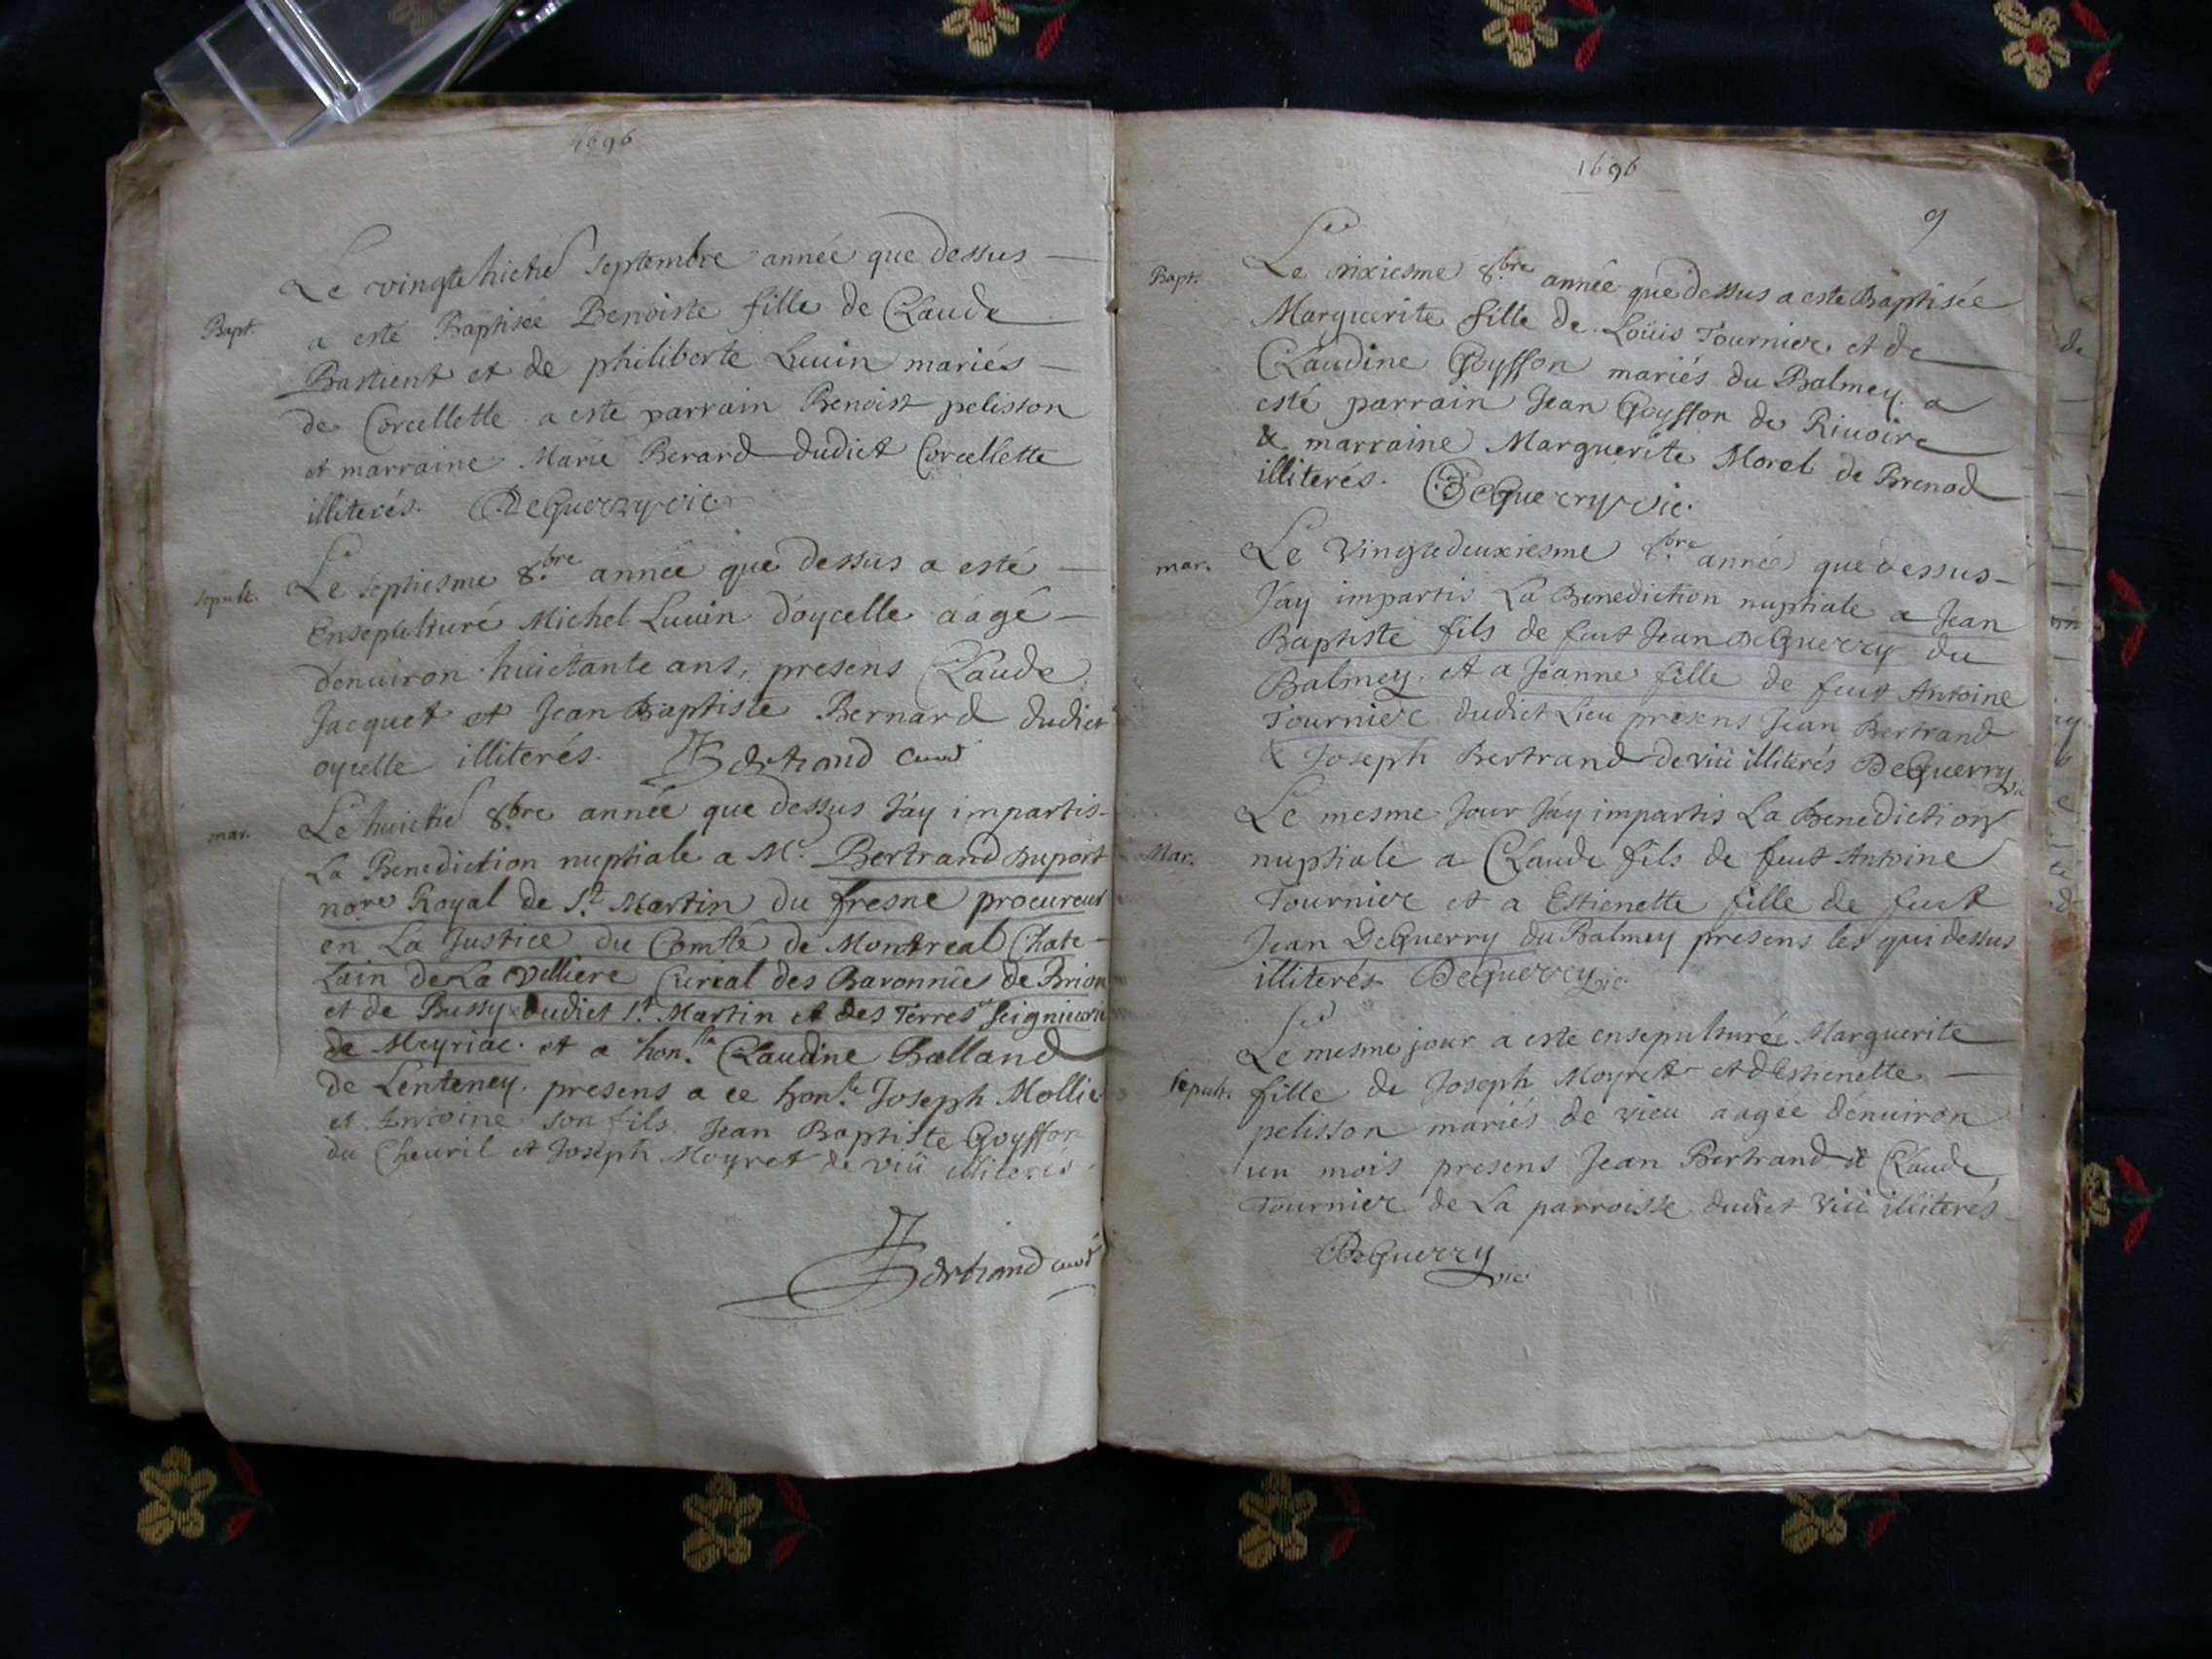 1696
Le vingte huictie septembre année que dessus
Bapt. a esté Baptisée Benoiste fille de Claude
Bastient et de philiberte Luuin mariés
de Corcellette a este parrain Benoist pelisson
et marraine Marie Berard dudict Corcellette
illiterés. DeGuerry vic.
Le septiesme 8.bre année que dessus a esté
sepult. Ensepulturé Michel Luuin d'oycelle aagé
d'enuiron huictante ans, presens Claude
Jacquet et Jean Baptiste Bernard dudict
oycelle illiterés. Bertrand curé
Le huictie 8.bre année que dessus J'ay impartis
mar. La Benediction nuptiale a Me. Bertrand Duport
nore Royal de St. Martin du fresne procureur
en La Justice du Comté de Montreal Chate-
lain de La Velliere Curial des Baronnies de Brion
et de Bussy dudict St. Martin et des Terres et Seigneurie
de Meyriac. et a hon.lle Claudine Balland
de Lenteney. presens a ce hon.le Joseph Mollie
et Antoine son fils Jean Baptiste Goyffon
du Cheuril et Joseph Moyret de viü illiterés
Bertrand curé
1696
9
Bapt. Le dixiesme 8.bre année que dessus a este Baptisée
Marguerite fille de Loüis Tournier et de
Claudine Goyffon mariés du Balmey. a
esté parrain Jean Goyffon de Riuoire
& marraine Marguerite Morel de Brenod
illiterés. DeGuerry vic.
mar. Le vingtedeuxiesme 8.bre année que dessus
J'ay impartis La Benediction nuptiale a Jean
Baptiste fils de feut Jean DeGuerry du
Balmey. et a Jeanne fille de feut Antoine
Tournier dudict Lieu presens Jean Bertrand
& Joseph Bertrand de viü illiterés DeGuerry vic
Le mesme Jour J'ay impartis La Benediction
Mar. nuptiale a Claude fils de feut Antoine
Tournier et a Estienette fille de feut
Jean DeGuerry du Balmey presens les qui dessus
illiterés DeGuerry vic.
Le mesme jour a este ensepulturée Marguerite
sepult. fille de Joseph Moyret et d'Estienette
pelisson mariés de vieu aagée d'enuiron
un mois presens Jean Bertrand et Claude
Tournier de La parroisse dudict viü illiterés
DeGuerry vic.